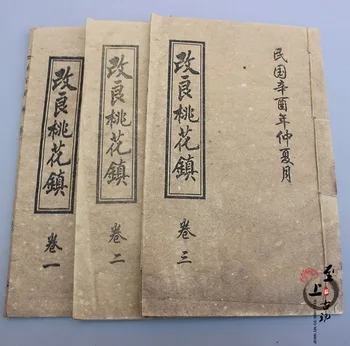 改良桃花鎮
卷一
改良桃花鎮
卷二
改良桃花鎮
卷三
民国辛酉年仲夏月
至上